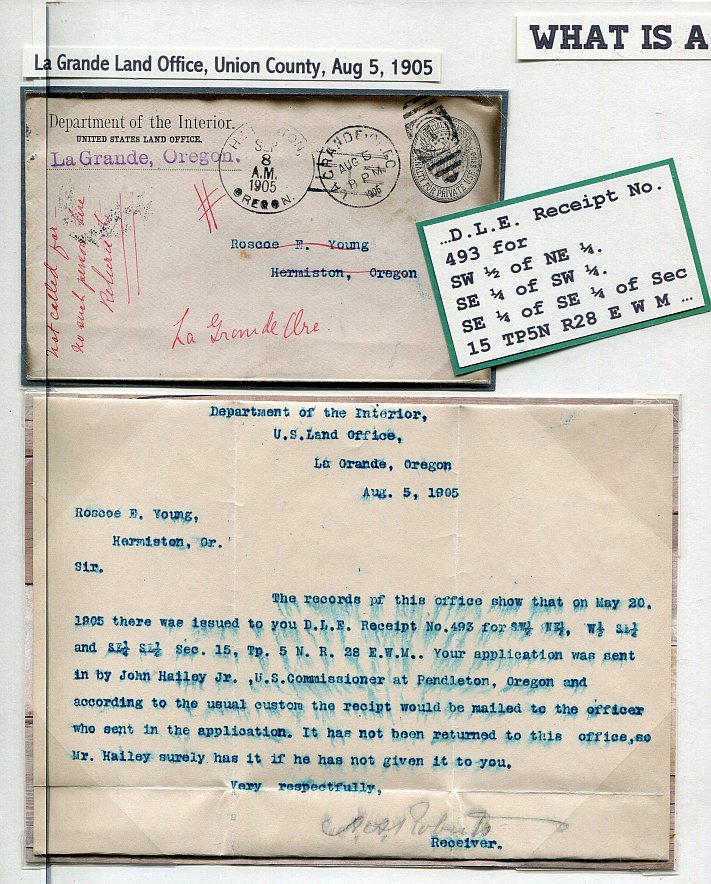 WHAT IS A
La Grande Land Office, Union County, Aug 5, 1905
Department of the Interior.
UNITED STATES LAND OFFICE.
La Grande, Oregon.
SEP
8
A.M.
1905
OREGON.
LA GRANDE, ORG.
AUG 5
8 PM
1905
Roscoe E. Young
Hermiston, Oregon
not called for
no such person here
Returned
La Grande Ore.
…D.L.E. Receipt No.
493 for
SW ½ of NE ¼.
SE ¼ of SW ¼.
SE ¼ of SE ¼ of Sec
15 TP5N R28 E W M …
Department of the Interior,
U.S.Land Office,
La Grande, Oregon
Aug. 5, 1905
Roscoe E. Young,
Hermiston, Or.
Sir.
The records pf this office show that on May 20.
1905 there was issued to you D.L.E. Receipt No.493 for SW¼ NE¼, W½ SE¼
and SE¼ SE¼ Sec. 15, Tp. 5 N. R. 28 E.W.M.. Your application was sent
in by John Hailey Jr. ,U.S.Commissioner at Pendleton, Oregon and
according to the usual custom the recipt would be mailed to the officer
who sent in the application. It has not been returned to this office,so
Mr. Hailey surely has it if he has not given it to you.
Very respectfully,
Receiver.